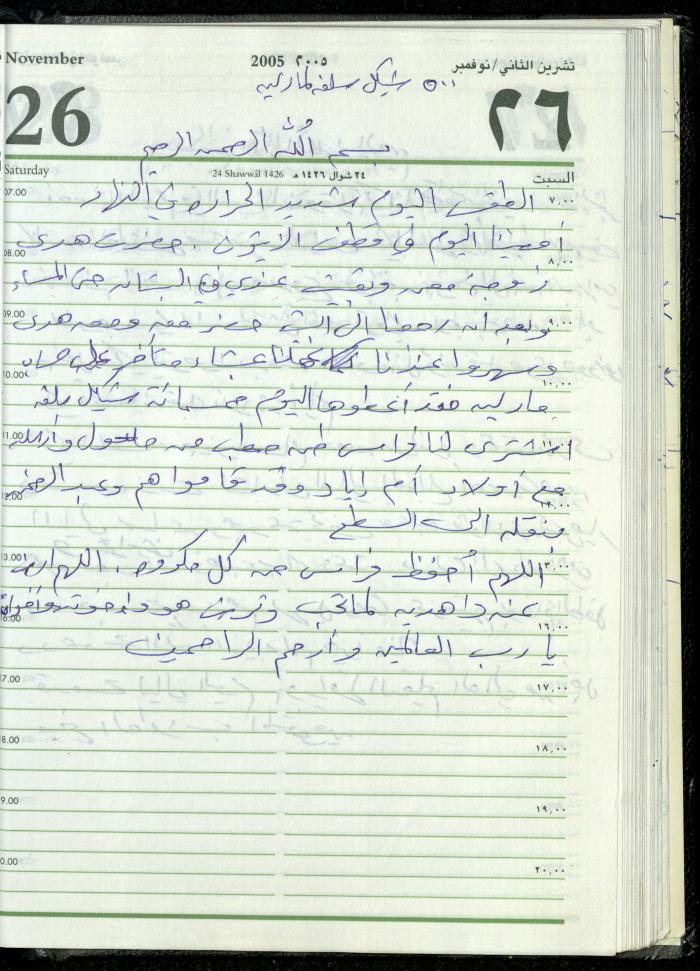 November
2005 ٢٠٠٥
تشرين الثاني/نوفمبر
٥٠٠ شيكل سلفه لماريه
26
٢٦
بسم الله الرحمن الرحيم
Saturday
24 Shawwâl 1426 ٢٤ شوال ١٤٢٦ هـ
السبت
07.00 ٧,٠٠
الطقس اليوم شديد الحرارة في النهار
أمضينا اليوم في قطف الزيتون . حضرت هدى
08.00 ٨,٠٠
زوجة معن وبقيت عندي في البستان حتى المساء
09.00
وبعد ان رجعنا الى البيت حضر معن ومعه هدى
وسهروا عندنا عشاء متأخر على
10.00 ١٠,٠٠
ماريه فقد أعطوها اليوم خمسمائة شيكل سلفه
11.00 ١١,٠٠
اشترى لنا فراس طن حطب من وارسله
مع أولاد أم زياد وقد قاموا هم وعبد الرحمن
12.00 ١٢,٠٠
بنقله الى السطح
13.00 ١٣,٠٠
اللهم أحفظ فراس من كل مكروه . اللهم
عنه واهديه لما تحب هو واخوته
16.00 ١٦,٠٠
يا رب العالمين وأرحم الراحمين
17.00 ١٧,٠٠
18.00 ١٨,٠٠
19.00 ١٩,٠٠
20.00 ٢٠,٠٠